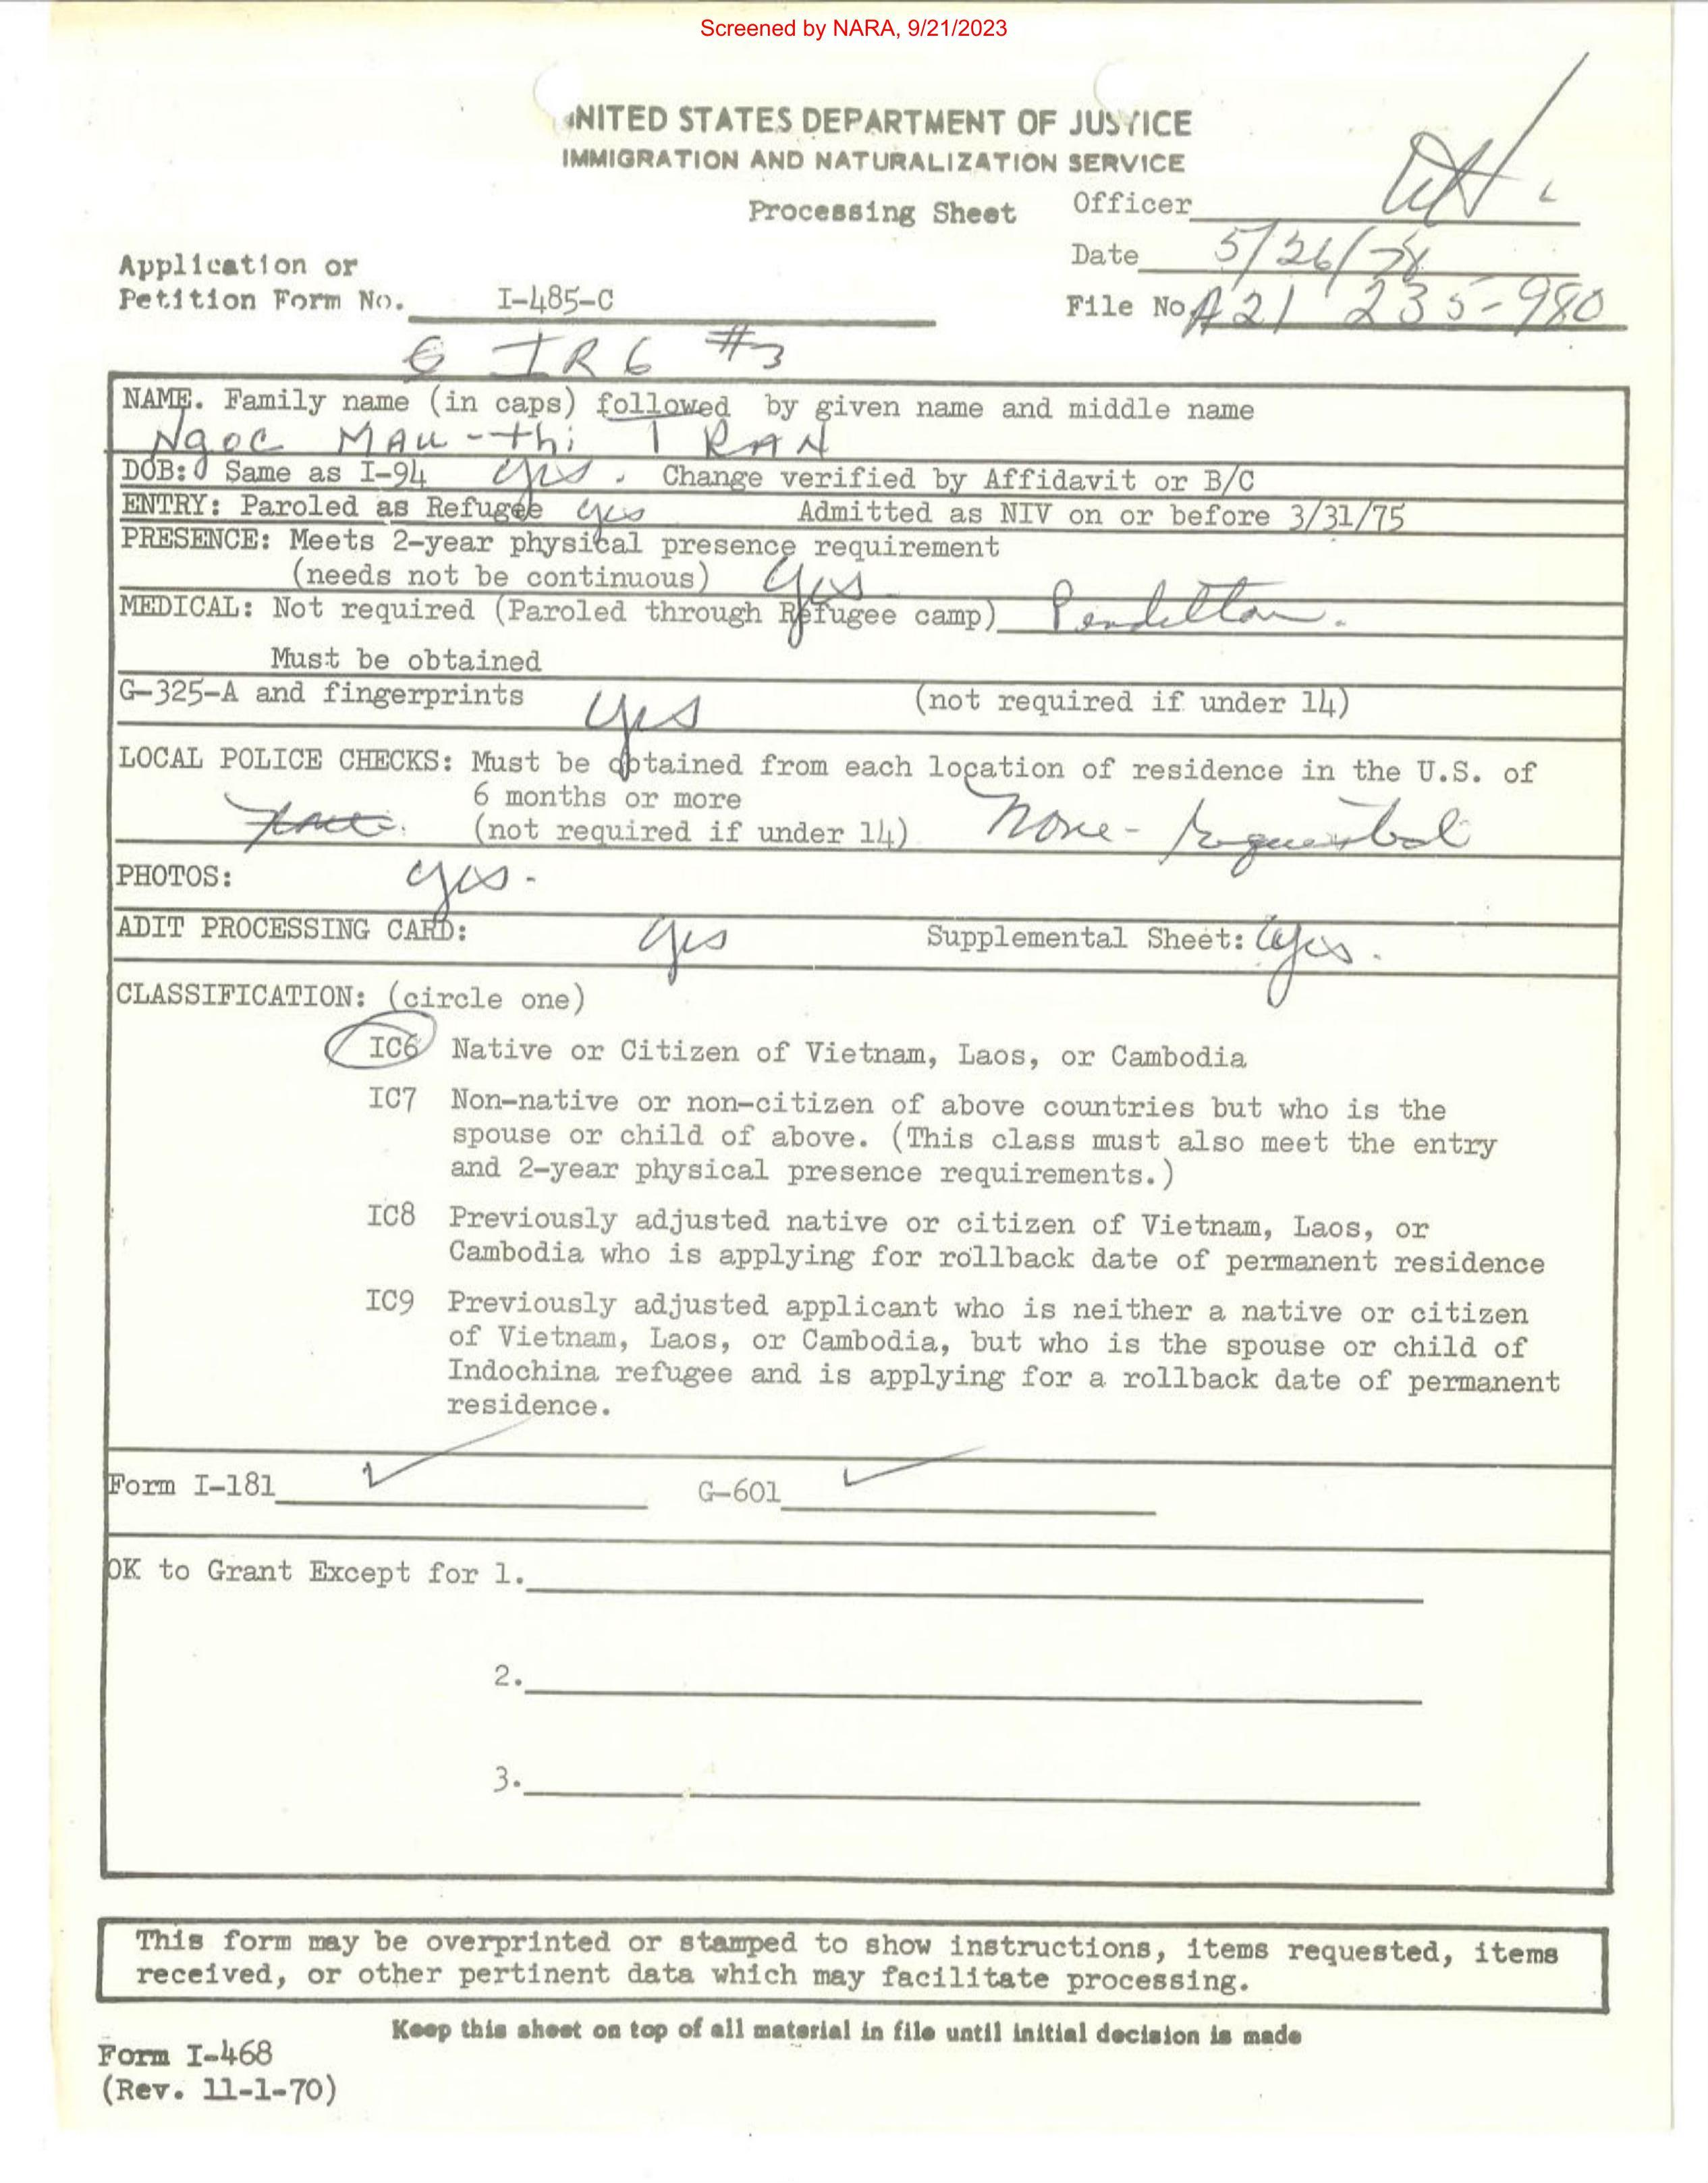 Screened by NARA, 9/21/2023
UNITED STATES DEPARTMENT OF JUSTICE
IMMIGRATION AND NATURALIZATION SERVICE
Processing Sheet
Officer
Date 5/26/78
File No. A21 235-980
Application or
Petition Form No. I-485-C
IR6 #3
NAME. Family name (in caps) followed by given name and middle name
Ngoc MAU-thi TRAN
DOB: Same as I-94 yes. Change verified by Affidavit or B/C
ENTRY: Paroled as Refugee yes Admitted as NIV on or before 3/31/75
PRESENCE: Meets 2-year physical presence requirement
(needs not be continuous) yes
MEDICAL: Not required (Paroled through Refugee camp) Pendelton.
Must be obtained
G-325-A and fingerprints yes (not required if under 14)
LOCAL POLICE CHECKS: Must be obtained from each location of residence in the U.S. of
6 months or more
(not required if under 14) None - Requested
PHOTOS: yes -
ADIT PROCESSING CARD: yes Supplemental Sheet: yes.
CLASSIFICATION: (circle one)
IC6 Native or Citizen of Vietnam, Laos, or Cambodia
IC7 Non-native or non-citizen of above countries but who is the
spouse or child of above. (This class must also meet the entry
and 2-year physical presence requirements.)
IC8 Previously adjusted native or citizen of Vietnam, Laos, or
Cambodia who is applying for rollback date of permanent residence
IC9 Previously adjusted applicant who is neither a native or citizen
of Vietnam, Laos, or Cambodia, but who is the spouse or child of
Indochina refugee and is applying for a rollback date of permanent
residence.
Form I-181 ✓ G-601 ✓
OK to Grant Except for 1.
2.
3.
This form may be overprinted or stamped to show instructions, items requested, items
received, or other pertinent data which may facilitate processing.
Keep this sheet on top of all material in file until initial decision is made
Form I-468
(Rev. 11-1-70)